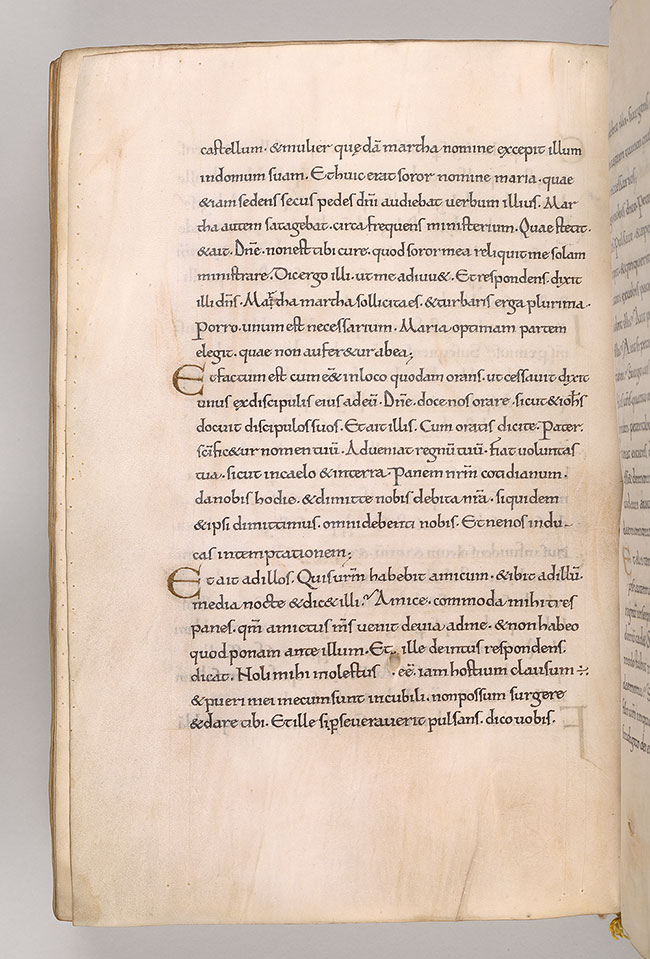 castellum. &mulier quędā martha nomine excepit illum
indomum suam. Ethuic erat soror nomine maria. quae
&iam sedens secus pedes dn̄i audiebat uerbum illius. Mar
tha autem satagebat. circa frequens ministerium. Quae stetit.
&ait. Dn̄e. nonest tibi cure. quod soror mea reliquit me solam
ministrare. Dic ergo illi. ut me adiuu&. Et respondens. dixit
illi dn̄s. Martha martha sollicita es. &turbaris erga plurima.
Porro. unum est necessarium. Maria optimam partem
elegit. quae non aufer&ur abea;
Et factum est cum eē& inloco quodam orans. ut cessauit dixit
unus exdiscipulis eius adeū. Dn̄e. doce nos orare. sicut &ioh̄s
docuit discipulos suos. Et ait illis. Cum oratis dicite. Pater.
sc̄ific&ur nomen tuū. Adueniat regnū tuū. Fiat uoluntas
tua. sicut incaelo &interra. Panem nr̄m cotidianum.
da nobis hodie. &dimitte nobis debita nr̄a. siquidem
&ipsi dimittimus. omni debenti nobis. Et nenos indu-
cas intemptationem;
Et ait ad illos. Quis ur̄m habebit amicum. &ibit ad illū.
media nocte &dic& illi. Amice. commoda mihi tres
panes. qm̄ amicus m̄s uenit deuia adme. &non habeo
quod ponam ante illum. Et ille deintus respondens.
dicat. Noli mihi molestus .eē. iam hostium clausum ÷.
&pueri mei mecum sunt incubili. non possum surgere
&dare tibi. Et ille si p̱seuerauerit pulsans. dico uobis.